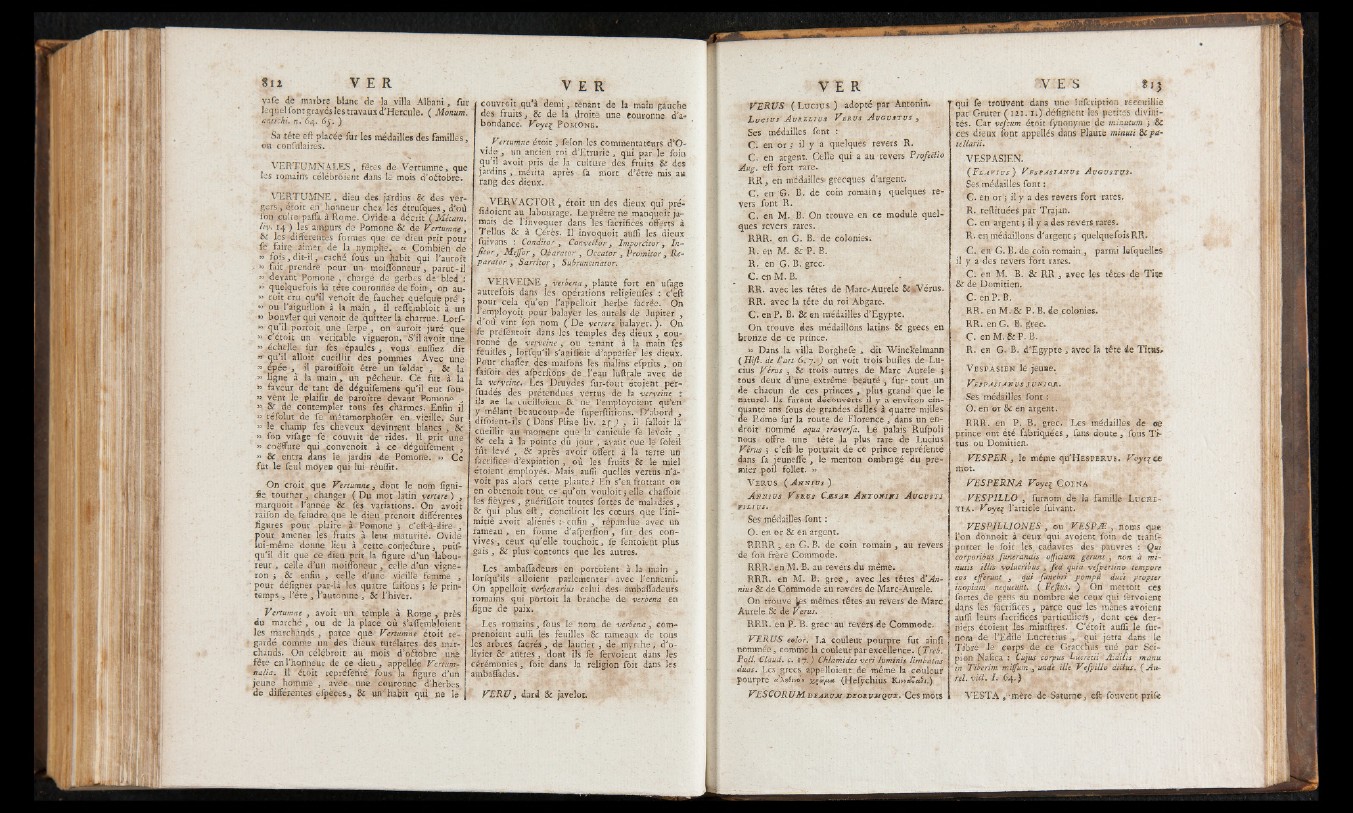 812 VER
vase de marbre blanc de la villa Albani, sur
lequel sont gravés les travaux d'Hercule. (Monum.
antichi. n. 64. 65.)
Sa tête est placée sur les médailles des familles,
ou consulaires.
VERTUMNALES, fêtes de Vertumne, que
les romains célébroient dans le mois d'octobre.
VERTUMNE, dieu des jardins & des ver-
gers, étoit en honneur chez les étrusques, d'où
son culte passa à Rome. Ovide a décrit (Métam.
liv. 14) les amours de Pomone & de Vertumne,
& les différentes formes que ce dieu prit pour
se faire aimer de la nymphe. « Combien de
» fois, dit-il, caché sous un habit qui l'auroit
» fait prendre pour un moissonneur, parut-il
» devant Pomone, chargé de gerbes de bled :
» quelquefois la tête couronnée de foin, on au-
» roit cru qu'il venoit de faucher quelque pré ;
» ou l'aiguillon à la main, il ressembloit à un
» bouvier qui venoit de quitter la charrue. Lors-
» qu'il portoit une serpe, on auroit juré que
» c'étoit un véritable vigneron. S'il avoit une
» échelle sur ses épaules, vous eussiez dit
» qu'il alloit cueillir des pommes Avec une
» épée, il paroissoit être un soldat, & la
» ligne à la main, un pêcheur. Ce fut à la
» faveur de tant de déguisemens qu'il eut sou-
» vent le plaisir de paroître devant Pomone
» & de contempler tous ses charmes. Enfin il
» résolut de se métamorphoser en vieille. Sur
» le champ ses cheveux devinrent blancs, &
» son visage se couvrit de rides. Il prit une
» coëffure qui convenoit à ce déguisement,
» & entra dans le jardin de Pomone. » Ce
fut le seul moyen qui lui réussit.
On croit que Vertumne, dont le nom signi-
fie tourner, changer (Du mot latin vertere),
marquoit l'année & ses variations. On avoit
raison de feindre que le dieu prenoit différentes
figures pour plaire à Pomone ; c'est-à-dire,
pour amener les fruits à leur maturité. Ovide
lui-même donne lieu à cette conjecture, puis-
qu'il dit que ce dieu prit la figure d'un labou-
reur, celle d'un moissonneur, celle d'un vigne-
ron ; & enfin, celle d'une vieille femme,
pour désigner par-là les quatre saisons ; le prin-
temps, l'été, l'automne, & l'hiver.
Vertumne, avoit un temple à Rome, près
du marché, ou de la place où s'assembloient
les marchands, parce que Vertumne étoit re-
gardé comme un des dieux tutélaires des mar-
chands. On célébroit au mois d'octobre une
fête en l'honneur de ce dieu, appellée Vertum-
nalia. Il étoit représenté sous la figure d'un
jeune homme, avec une couronne d'herbes
de différentes espèces, & un habit qui ne le
VER
couvroit qu'à demi, tenant de la main gauche
des fruits, & de la droite une couronne d'a-
bondance. Voyez POMONE.
Vertumne étoit, selon les commentateurs d'O-
vide, un ancien roi d'Etrurie, qui par le soin
qu'il avoit pris de la culture des fruits & des
jardins, mérita après sa mort d'être mis au
rang des dieux.
VERVACTOR, étoit un des dieux qui pré-
sidoient au labourage. Le prêtre ne manquoit ja-
mais de l'invoquer dans les sacrifices offerts à
Tellus & à Cérès. Il invoquoit aussi les dieux
suivans : Conditor, Convector, Imporcitor, In-
sitor, Messor, Obarator, Occator, Promitor, Re-
parator, Sarritor, Subruncinator.
VERVEINE, verbena, plante fort en usage
autrefois dans les opérations religieuses : c'est
pour cela qu'on l'appelloit herbe sacrée. On
l'employoit pour balayer les autels de Jupiter,
d'où vint son nom (De verrere balayer.). On
se présentoit dans les temples des dieux, cou-
ronné de verveine, ou tenant à la main ses
feuilles, lorsqu'il s'agissoit d'appaiser les dieux.
Pour chasser des maisons les malins esprits, on
faisoit des aspersions de l'eau lustrale avec de
la verveine. Les Druydes sur-tout étoient per-
suadés des prétendues vertus de la verveine :
ils ne la cueilloient & ne l'employoient qu'en
y mêlant beaucoup de superstitions. D'abord,
disoient-ils (Dans Pline liv. 25), il falloit la
cueillir au moment que la canicule se levoit,
& cela à la pointe du jour, avant que le soleil
fût levé, & après avoir offert à la terre un
sacrifice d'expiation, où les fruits & le miel
étoient employés. Mais aussi quelles vertus n'a-
voit pas alors cette plante? En s'en frottant on
en obtenoit tout ce qu'on vouloit; elle chassoit
les fièvres, guérissoit toutes sortes de maladies,
& qui plus est, concilioit les cœurs que l'ini-
mitié avoit aliénés : enfin, répandue avec un
rameau, en forme d'aspersion, sur des con-
vives, ceux qu'elle touchoit, se sentoient plus
gais, & plus contents que les autres.
Les ambassadeurs en portoient à la main,
lorsqu'ils alloient parlementer avec l'ennemi.
On appelloit verbenarius celui des ambassadeurs
romains qui portoit la branche de verbena en
signe de paix.
Les romains, sous le nom de verbena, com-
prenoient aussi les feuilles & rameaux de tous
les arbres sacrés, de laurier, de myrthe, d'o-
livier & autres, dont ils se servoient dans les
cérémonies, soit dans la religion soit dans les
ambassades.
VERU, dard & javelot.
VER
VERUS (LUCIUS) adopté par Antonin.
LUCIUS AURELIUS VERUS AUGUSTUS,
Ses médailles sont :
C. en or ; il y a quelques revers R.
C. en argent. Celle qui a au revers Profectio
Aug. est fort rare.
RR, en médailles grecques d'argent.
C. en G. B. de coin romain; quelques re-
vers sont R.
C. en M. B. On trouve en ce module quel-
ques revers rares.
RRR. en G. B. de colonies.
R. en M. & P. B.
R. en G. B. grec.
C. en M. B.
RR. avec les têtes de Marc-Aurele & Vérus.
RR. avec la tête du roi Abgare.
C. en P. B. & en médailles d'Egypte.
On trouve des médaillons latins & grecs en
bronze de ce prince.
» Dans la villa Borghese, dit Winckelmann
(Hist. de l'art 6. 7.) on voit trois bustes de Lu-
cius Vérus, & trois autres de Marc Aurele ;
tous deux d'une extrême beauté, sur-tout un
de chacun de ces princes, plus grand que le
naturel. Ils furent découverts il y a environ cin-
quante ans sous de grandes dalles à quatre milles
de Rome sur la route de Florence, dans un en-
droit nommé aqua traversa. Le palais Ruspoli
nous offre une tête la plus rare de Lucius
Vérus ; c'est le portrait de ce prince représenté
dans sa jeunesse, le menton ombragé du pre-
mier poil follet. »
VERUS (ANNIUS)
ANNIUS VERUS CÆSAR ANTONINI AUGUSTI
FILIUS.
Ses médailles sont :
O. en or & en argent.
RRRR, en G. B. de coin romain, au revers
de son frère Commode.
RRR. en M. B. au revers du même.
RRR. en M. B. grec, avec les têtes d'An-
nius & de Commode au revers de Marc-Aurele.
On trouve les mêmes têtes au revers de Marc
Aurele & de Verus.
RRR. en P. B. grec au revers de Commode.
VERUS color. La couleur pourpre fut ainsi
nommée, comme la couleur par excellence. (Treb.
Poll. Claud. c. 17.) Chlamides veri luminis limbatas
duas. Les grecs appelloient de même la couleur
pourpre (Hesychius
VESCORUM DEARUM DEORUMQUE. Ces mots
VES 813
qui se trouvent dans une Inscription recueillie
par Gruter (121. 1.) désignent les petites divini-
tés. Car vescum étoit synonyme de minutum ; &
ces dieux sont appellés dans Plaute minuti & pa-
tellarii.
VESPASIEN.
(FLAVIUS) VESPASIANUS AUGUSTUS.
Ses médailles sont :
C. en or ; il y a des revers fort rares.
R. restituées par Trajan.
C. en argent ; il y a des revers rares.
R. en médaillons d'argent ; quelquefois RR.
C. en G. B. de coin romain, parmi lesquelles
il y a des revers fort rares.
C. en M. B. & RR, avec les têtes de Tite
& de Domitien.
C. en P. B.
RR. en M. & P. B. de colonies.
RR. en G. B. grec.
C. en M. & P. B.
R. en G. B. d'Egypte, avec la tête de Titus.
VESPASIEN le jeune.
VESPASIANUS JUNIOR.
Ses médailles sont :
O. en or & en argent.
RRR. en P. B. grec. Les médailles de ce
prince ont été fabriquées, sans doute, sous Ti-
tus ou Domitien.
VESPER, le même qu'HESPERUS. Voyez ce
mot.
VESPERNA Voyez COENA
VESPILLO, surnom de la famille LUCRE-
TIA. Voyez l'article suivant.
VESPILLIONES, ou VESPÆ, noms que
l'on donnoit à ceux qui avoient soin de trans-
porter le soir les cadavres des pauvres : Qui
corporibus funerandis officium gerunt, non à mi-
nutis illis volucribus, sed quia vespertino tempore
eos efferunt, qui funebri pompâ duci propter
inopiam nequeunt. (Festus.) On mettoit ces
sortes de gens au nombre de ceux qui servoient
dans les sacrifices, parce que les mânes avoient
aussi leurs sacrifices particuliers, dont ces der-
niers étoient les ministres. C'étoit aussi le sur-
nom de l'Edile Lucretius, qui jetta dans le
Tibre le corps de ce Gracchus tué par Sci-
pion Nasica : Cujus corpus Lucretii Ædilis manu
in Tiberim missum, unde ille Vespillo dictus. (Au-
rel. vict. I. 64.)
VESTA, mère de Saturne, est souvent prise